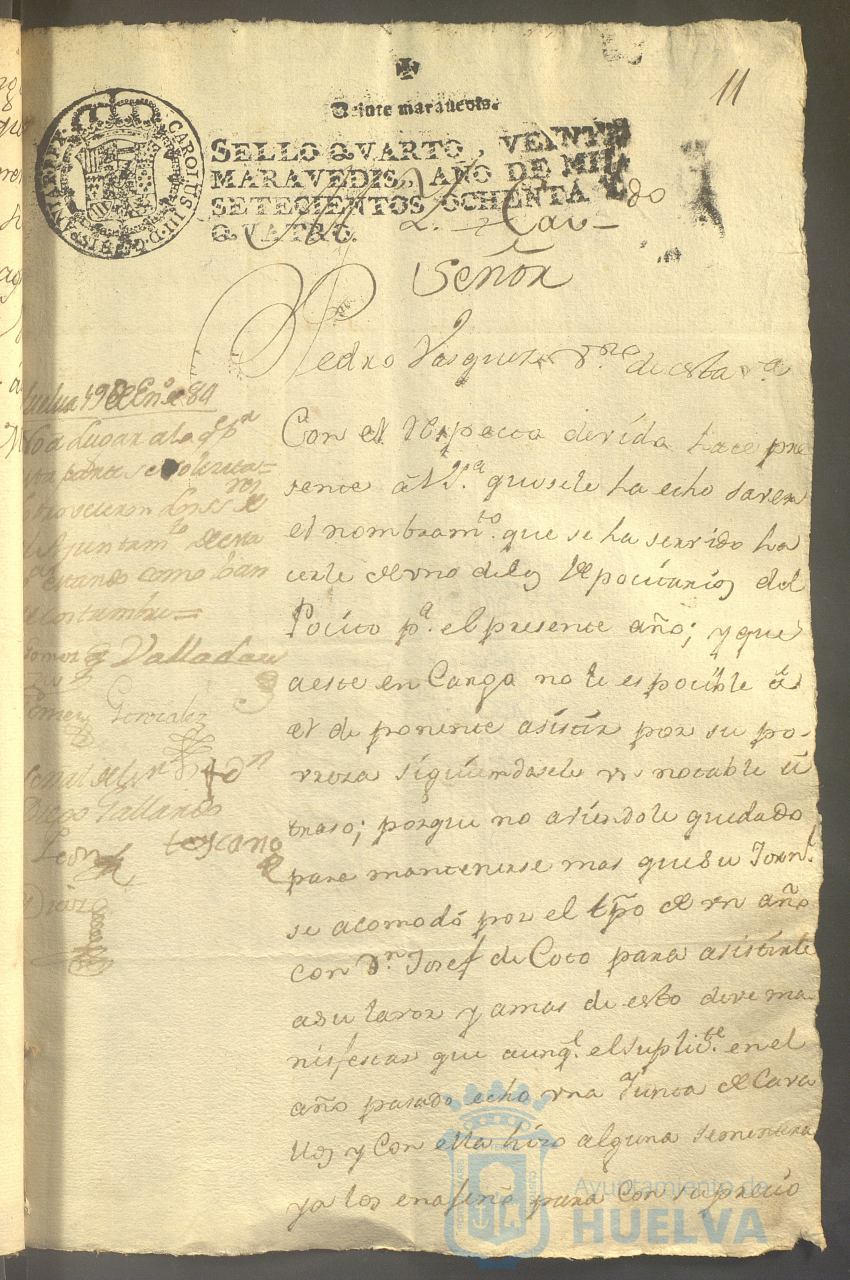 11
Veinte maravedis.
SELLO QVARTO, VEINTE
MARAVEDIS, AÑO DE MIL
SETECIENTOS OCHENTA Y
QVATRO.
CAROLUS III D. G. HISPANIAR. REX
Señor
Pedro Vasquez vno de esta va
Con el Respecto devida hace pre
sente a V.Sa que se le ha echo saver
el nombramto. que se ha servido ha
cerle de vno delos Depocitarios del
Pocito pa. el presente año; y que
a este en Cargo no le es pocible
el de ponente asistir por su po-
vreza siguiendosele un notable a
traso; porque no aviendole quedado
para mantenerse mas que su Jornl.
se acomodó por el tpo de vn año
con Dn. Josef de Coto para asistirle
a su lavor y amas de esto deve ma
nifestar que aunq.e el suplicte. en el
año pasado echo vna Junta de Cava
llos y con ella hizo alguna sementera
ya los enagenó para con su precio
Huelva 19 de Eno. de 84
No a Lugar ala
el Ayuntamto. de esta
estando como
costumbre
Gomez Valladares
Gomez Gonzalez
Señal de
Diego Gallardo
Leon toscano
Diaz
Ayuntamiento de
HUELVA